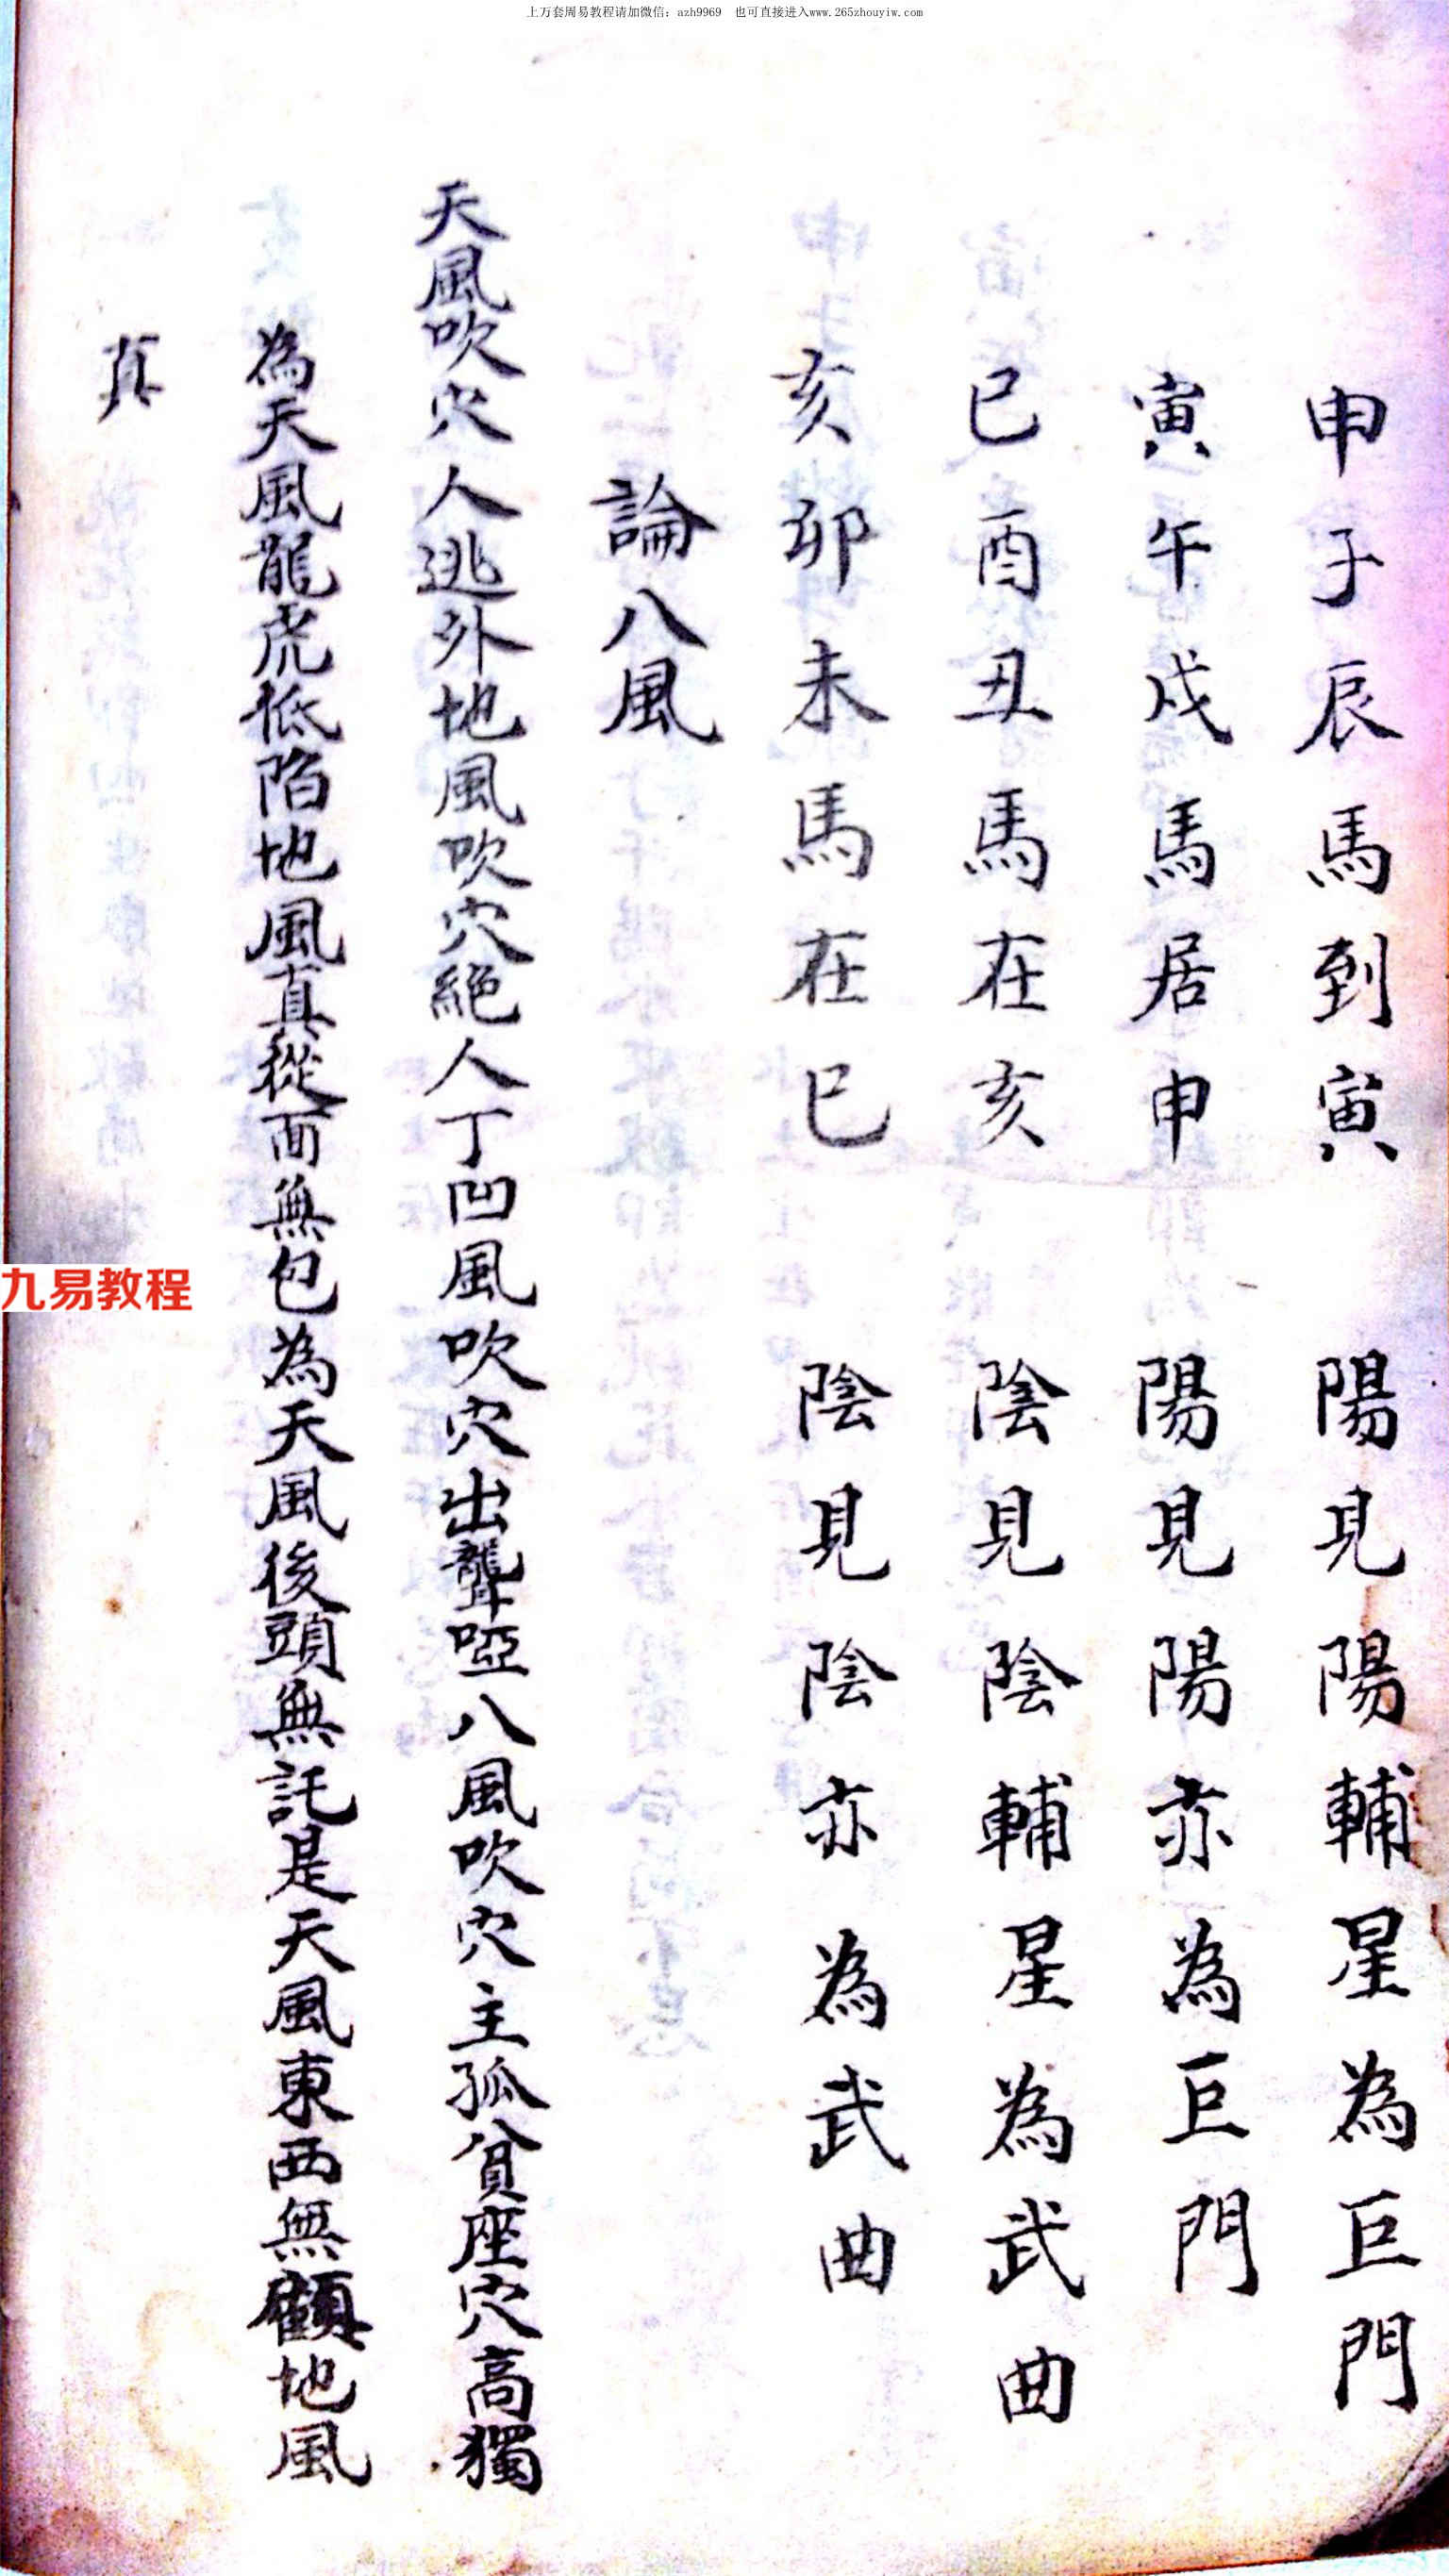 上万套周易教程请加微信：azh9969 也可直接进入www.265zhouyiw.com
申子辰馬到寅 陽見陽輔星為巨門
寅午戌馬居申 陽見陽亦為巨門
巳酉丑馬在亥 陰見陰輔星為武曲
亥卯未馬在巳 陰見陰亦為武曲
論八風
天風吹穴人逃外地風吹穴絕人丁凹風吹穴出聾啞八風吹穴主孤貧座穴高獨
為天風龍虎低陷地風真從面無包為天風後頭無託是天風東西無顧地風
真
九易教程